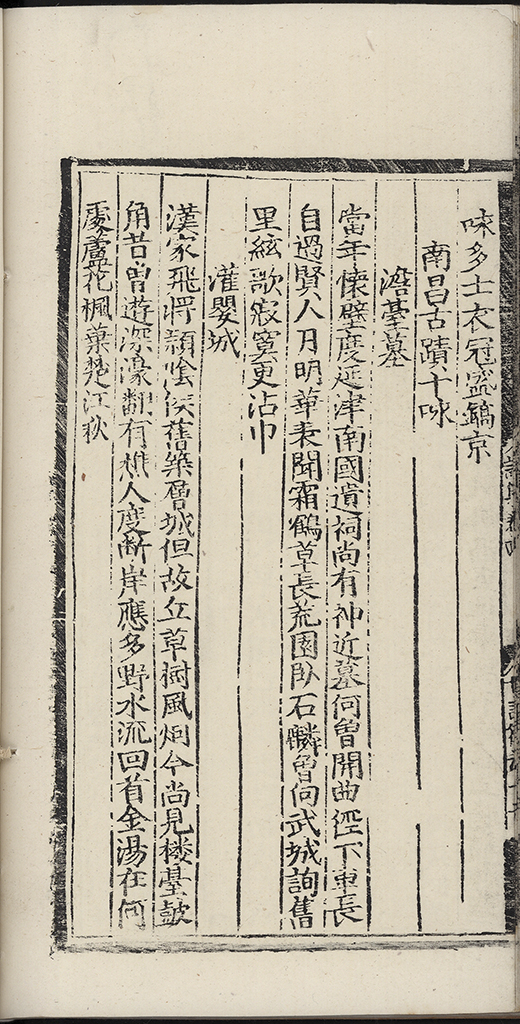 味多士衣冠盛鎬京
南昌古蹟十咏
澹臺墓
當年懷璧度延津南國遺祠尚有神近墓何曾開曲徑下車長
自過賢人月明華表聞霜鶴草長荒園臥石麟曾向武城詢舊
里絃歌寂寞更沾巾
灌嬰城
漢家飛將頴隂侯舊築層城但故丘草樹風烟今尚見樓臺鼓
角昔曾遊深濠翻有樵人度断岸應多野水流回首金湯在何
處蘆花楓葉楚江秋